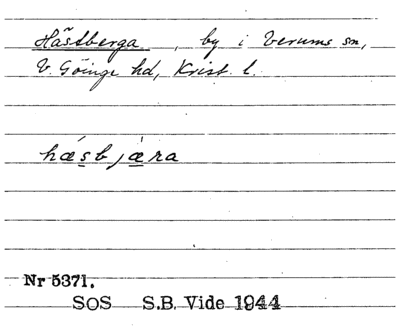 Hästberga, by i Verums sn,
V. Göinge hd, Krist. l.
hásbjæ̀ra
Nr 5371.
SOS S.B. Vide 1944